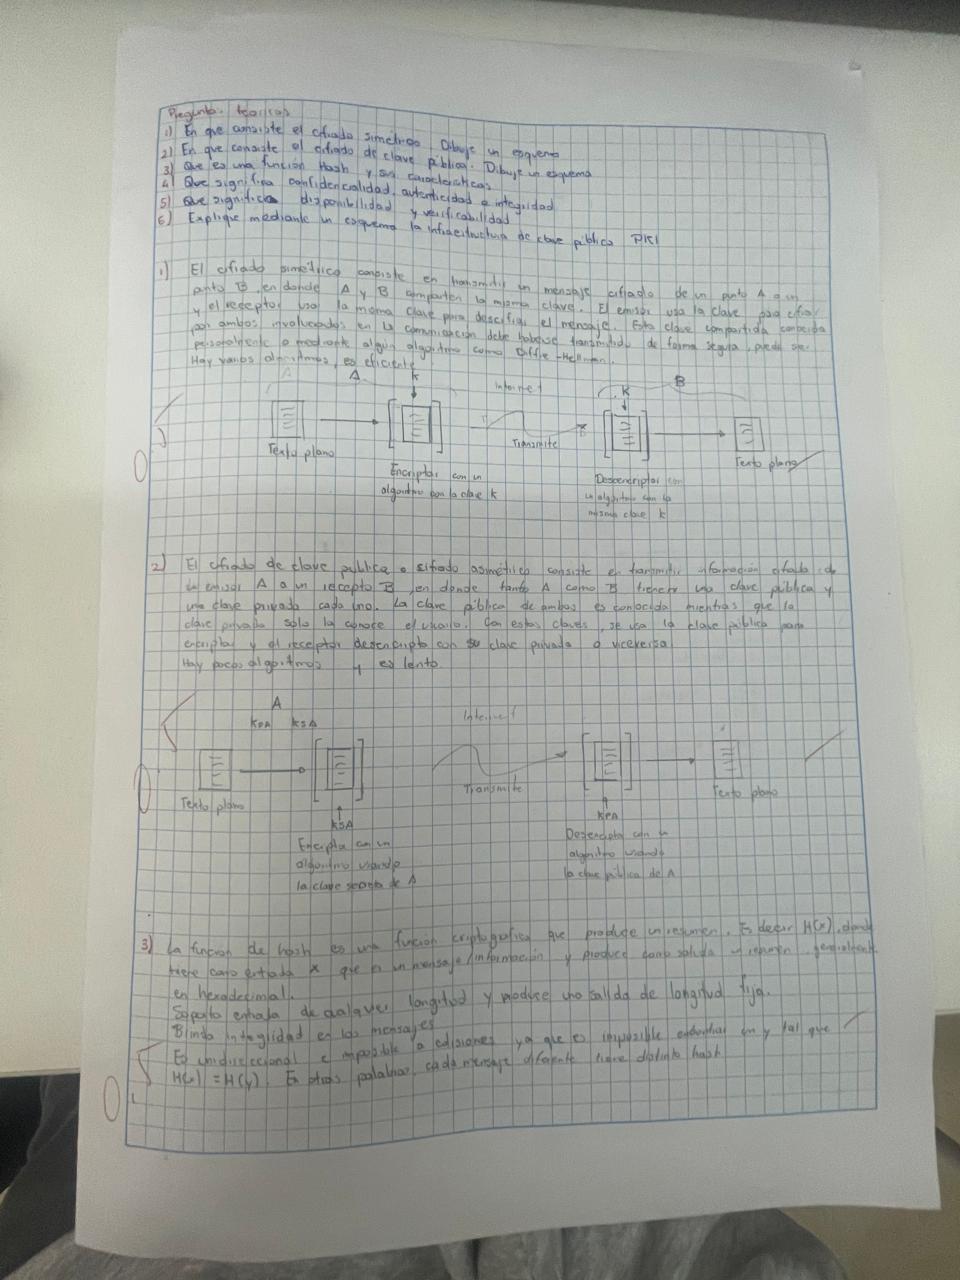 Pregunta teoricas
1) En que consiste el cifrado simetrico. Dibuje un esquema
2) En que consiste el cifrado de clave pública. Dibuje un esquema
3) Que es una función Hash y sus características
4) Que significa confidencialidad, autenticidad e integridad
5) Que significa disponibilidad y verificabilidad
6) Explique mediante un esquema la infraestructura de clave pública PKI
1) El cifrado simétrico consiste en transmitir un mensaje cifrado de un punto A a un
punto B, en donde A y B comparten la misma clave. El emisor usa la clave para cifrar
y el receptor usa la misma clave para descifrar el mensaje. Esta clave compartida conocida
por ambos involucrados en la comunicación debe haberse transmitido de forma segura, puede ser
personalmente o mediante algún algoritmo como Diffie-Hellman.
Hay varios algoritmos, es eficiente
A K Internet K B
Transmite
Texto plano Texto plano
Encriptar con un
algoritmo con la clave K
Desencriptar con
un algoritmo con la
misma clave K
2) El cifrado de clave publica o cifrado asimétrico consiste en transmitir información cifrada de
un emisor A a un recepto B, en donde tanto A como B tienen una clave pública y
una clave privada cada uno. La clave pública de ambos es conocida mientras que la
clave privada solo la conoce el usuario. Con estas claves, se usa la clave pública para
encriptar y el receptor desencripta con su clave privada o viceversa
Hay pocos algoritmos y es lento
A
KPA KSA Internet
Transmite
Texto plano Texto plano
KSA KPA
Encripta con un
algoritmo usando
la clave secreta de A
Desencripta con un
algoritmo usando
la clave pública de A
3) La funcion de hash es una funcion criptografica que produce un resumen. Es decir H(x), donde
tiene como entrada x que es un mensaje/información y produce como salida un resumen generalmente
en hexadecimal.
Soporta entrada de cualquier longitud y produce una salida de longitud fija.
Blinda integridad en los mensajes
Es unidireccional e imposible a colisiones ya que es imposible encontrar un y tal que
H(x) = H(y). En otras palabras, cada mensaje diferente tiene distinto hash